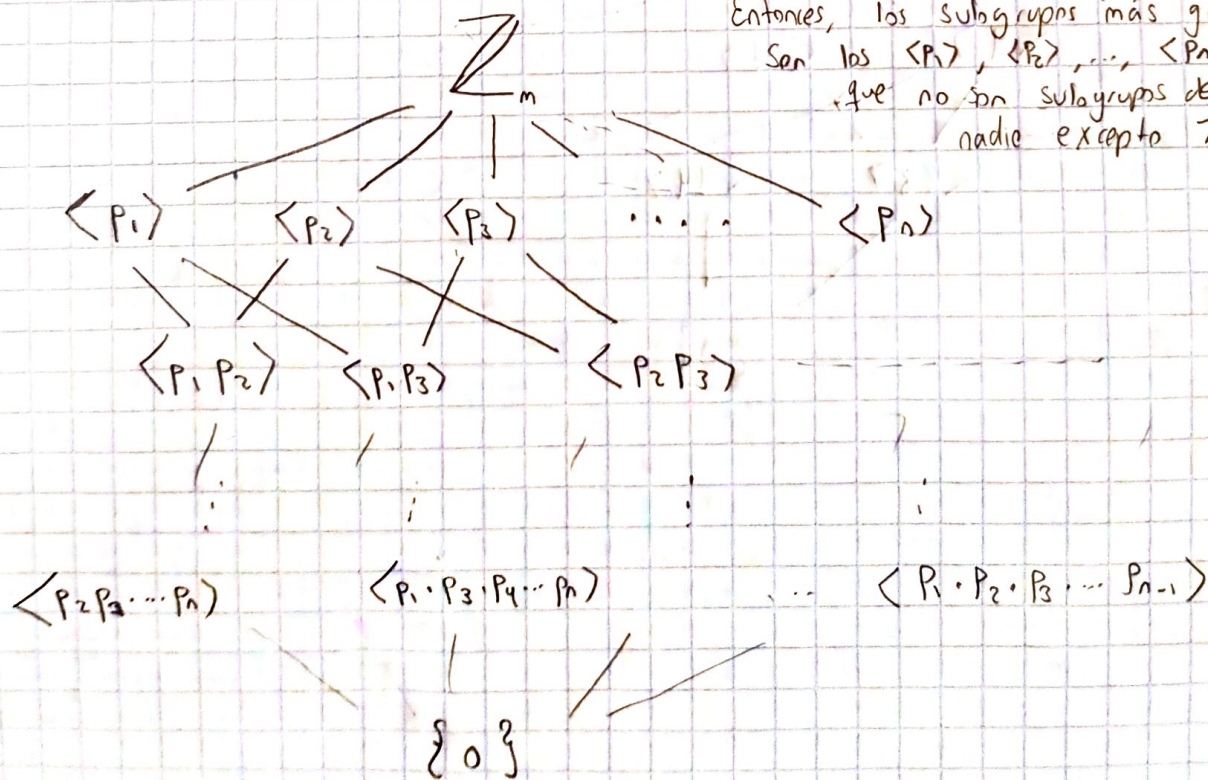 Entonces, los subgrupos más g
Son los <P₁>, <P₂>, ..., <Pn
que no son subgrupos de
nadie excepto
ℤm
<P₁> <P₂> <P₃> .... <Pn>
<P₁ P₂> <P₁P₃> <P₂ P₃>
<P₂P₃...Pn> <P₁·P₃·P₄...Pn> ... <P₁·P₂·P₃.... Pn-1>
{0}